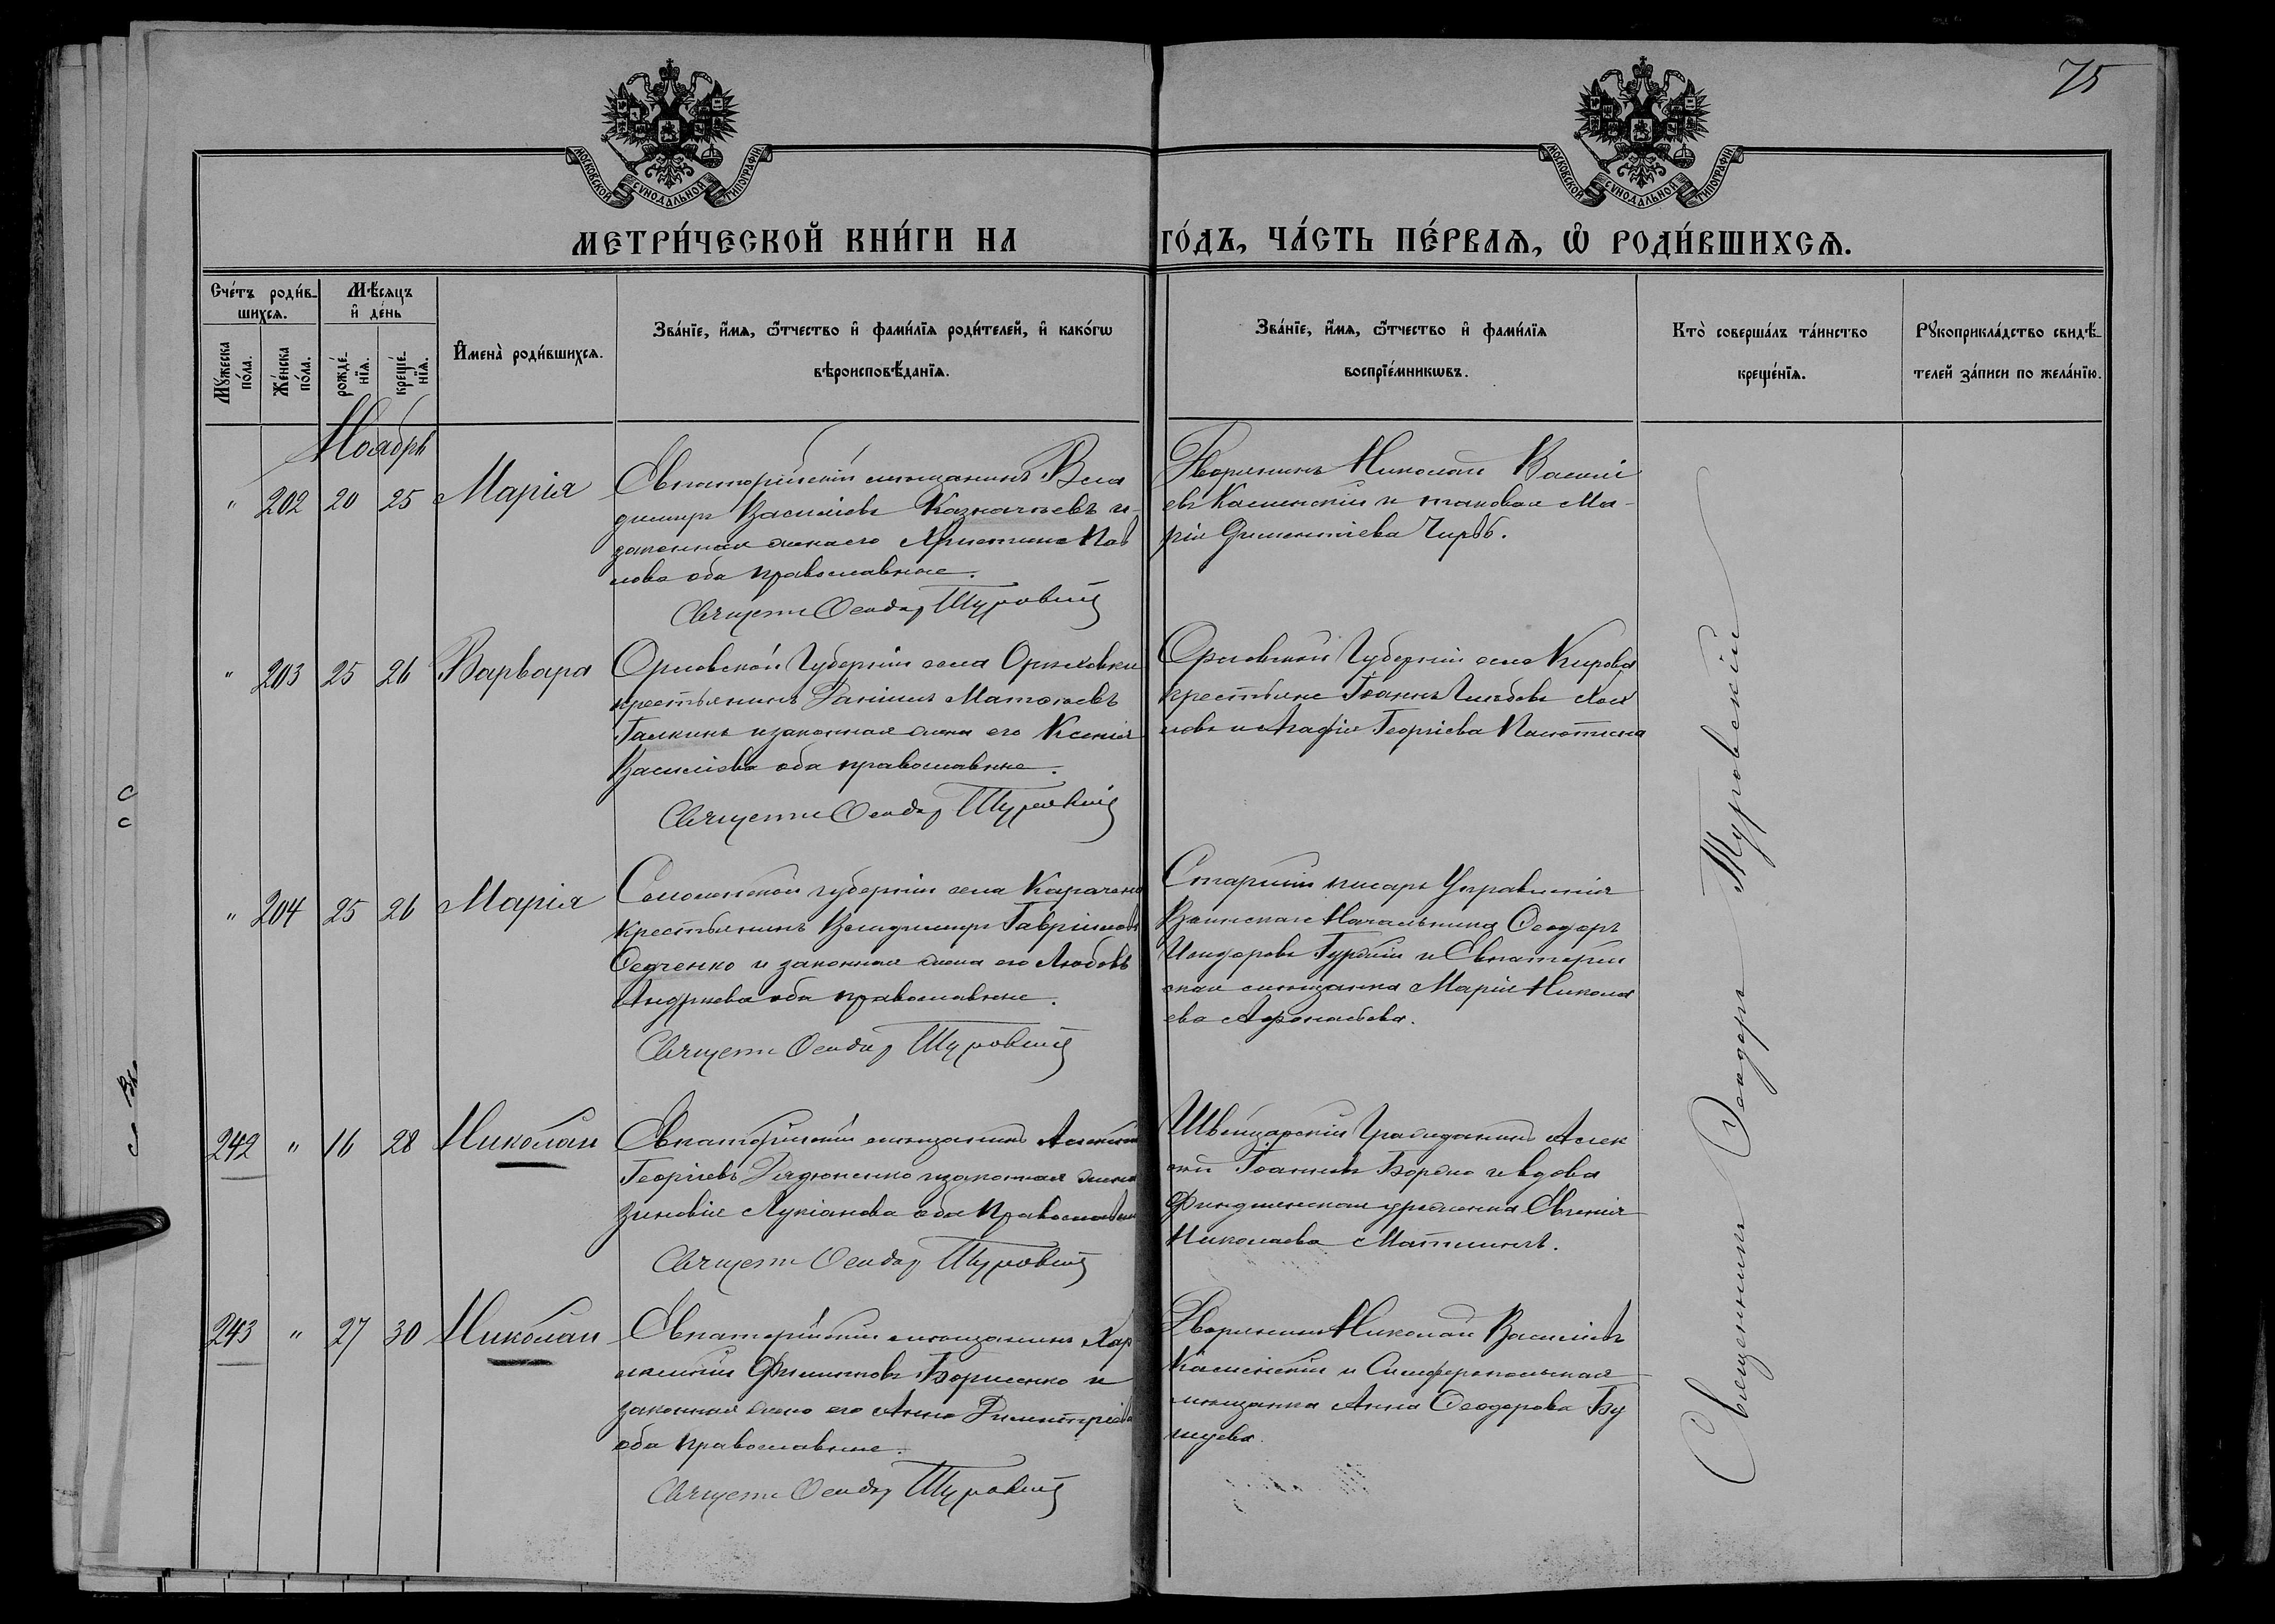 75
МОСКОВСКОЙ СѴНОДАЛЬНОЙ ТИПОГРАФІИ
МОСКОВСКОЙ СѴНОДАЛЬНОЙ ТИПОГРАФІИ
МЕТРИ́ЧЕСКОЙ КНИ́ГИ НА ГО́ДЪ, ЧА́СТЬ ПЕ́РВАѦ, Ѽ РОДИ́ВШИХСѦ.
Сче́тъ роди́в-
шихсѧ.
Мꙋ́жеска по́ла.
Же́нска по́ла.
Мѣ́сѧцъ и҆ де́нь
рожде́-нїѧ.
креще́-нїѧ.
И҆мена̀ роди́вшихсѧ.
Зва́нїе, и҆́мѧ, ѻ҆́тчество и҆ фами́лїѧ роди́телей, и҆ како́гѡ
вѣроисповѣ́данїѧ.
Зва́нїе, и҆́мѧ, ѻ҆́тчество и҆ фами́лїѧ
воспрїе́мникѡвъ.
Кто̀ соверша́лъ та́инство
креще́нїѧ.
Рꙋкоприкла́дство свидѣ́-
телей за́писи по жела́нїю.
Ноябрь
" 202 20 25 Марія
Евпаторійскій мѣщанинъ Вла
димиръ Василіевъ Казначѣевъ и
законная жена его Христина Пав
лова оба православные.
Священ Ѳеодор Туровскій
Дворянинъ Николай Василі
евъ Каменскій и таковая Ма-
рія Климентіева
" 203 25 26 Варвара
Орловской Губерніи села Орѣховки
крестьянинъ Даніилъ Матѳеевъ
Галкинъ и законная жена его Ксенія
Василіева оба православные.
Священ Ѳеодор Туровскій
Орловской Губерніи села Кирова
крестьяне Іоаннъ Глѣбовъ
и Агафія Георгіева
" 204 25 26 Марія
Смоленской губерніи села
крестьянинъ Владимиръ Гавріиловъ
Седченко и законная жена его Любовь
Андреева оба православные.
Священ Ѳеодор Туровскій
Старшій писарь Управленія
Воинскаго Начальника Ѳеодоръ
и Евпаторій
ская мѣщанка Марія Никола
ева Аѳонасьева.
242 " 16 28 Николай
Евпаторійскій мѣщанинъ Алексѣй
Георгіевъ Радюненко и законная жена
Зиновія Лукіанова оба Православные
Священ Ѳеодор Туровскій
Швейцарскій Гражданинъ Алек
сѣй Іоанновъ и вдова
Финдшенская уроженка Евгенія
Николаева
243 " 27 30 Николай
Евпаторійскій мѣщанинъ Хар
лампій Филипповъ Борисенко и
законная жена его Анна Димитріева
оба православные.
Священ Ѳеодор Туровскій
Дворянинъ Николай Василіевъ
Каменскій и Симферопольская
мѣщанка Анна Ѳеодорова Бу
Священникъ Ѳеодоръ Туровскій